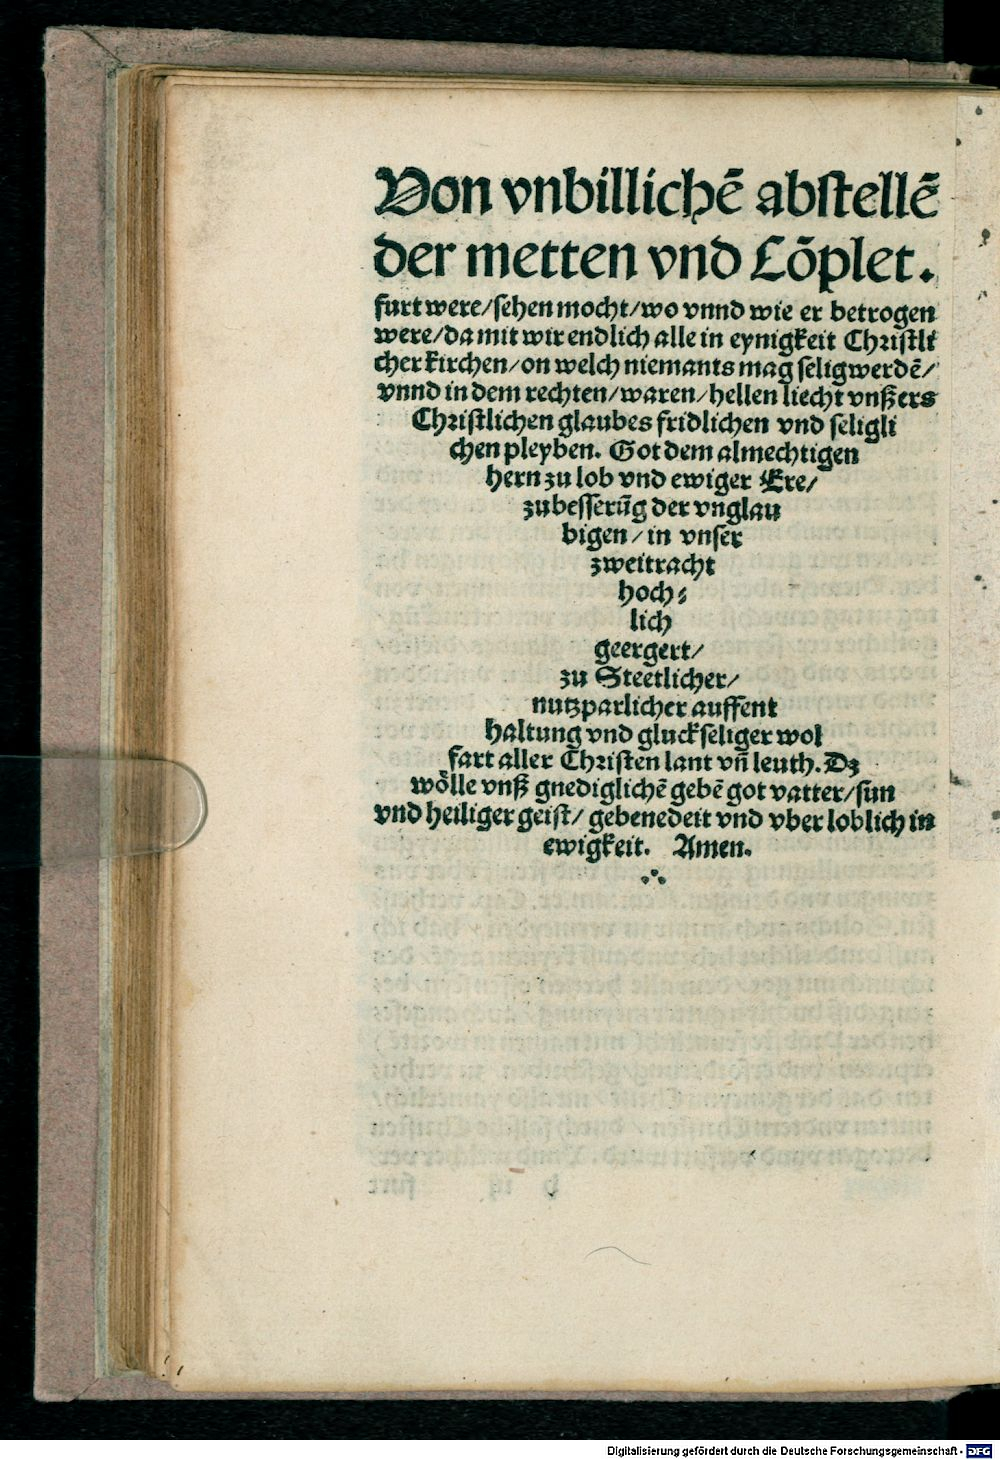 Von vnbillichē abstellē
der metten vnd Cōplet.
furt were/sehen mocht/wo vnnd wie er betrogen
were/da mit wir endlich alle in eynigkeit Christli
cher kirchen/on welch niemants mag selig werdē/
vnnd in dem rechten/waren/hellen liecht vnßers
Christlichen glaubes fridlichen vnd seligli
chen pleyben. Got dem almechtigen
hern zu lob vnd ewiger Ere/
zubesserūg der vnglau
bigen/in vnser
zweitracht
hoch⸗
lich
geergert/
zu Steetlicher/
nutzparlicher auffent
haltung vnd gluckseliger wol
fart aller Christen lant vn̄ leuth. Dz
wölle vnß gnediglichē gebē got vatter/sun
vnd heiliger geist/ gebenedeit vnd vber loblich in
ewigkeit. Amen.
Digitalisierung gefördert durch die Deutsche Forschungsgemeinschaft - DFG